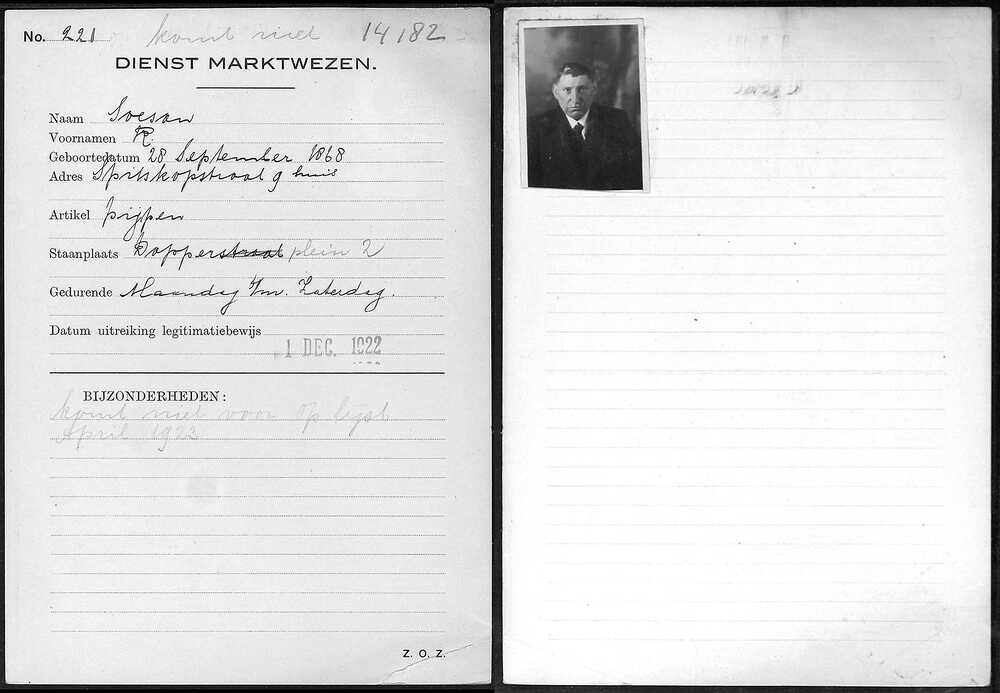 No. 221 komt niet 14182
DIENST MARKTWEZEN.
Naam Soesan
Voornamen R.
Geboortedatum 28 September 1868
Adres Spitskopstraat 9 huis
Artikel pijpen
Staanplaats Dapperstraat plein 2
Gedurende Maandag t/m. Zaterdag.
Datum uitreiking legitimatiebewijs
1 DEC. 1922
BIJZONDERHEDEN:
komt niet voor op lijst
April 1923
Z. O. Z.